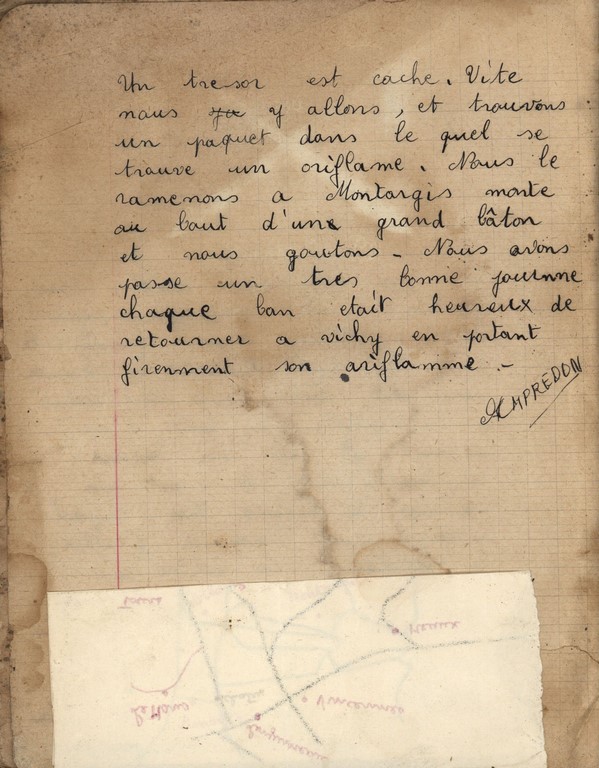 Un tresor est cache. Vite
nous y allons, et trouvons
un paquet dans le quel se
trouve un oriflame. Nous le
ramenons a Montargis monte
au bout d'une grand bâton
et nous goutons - Nous avons
passe un tres bonne jouinne
chaque ban etait heureux de
retourner a vichy en portant
firenment son ariflamme. -
AMPREDON
Tours
Meaux
Le Mans
Vincennes
Longjumeau